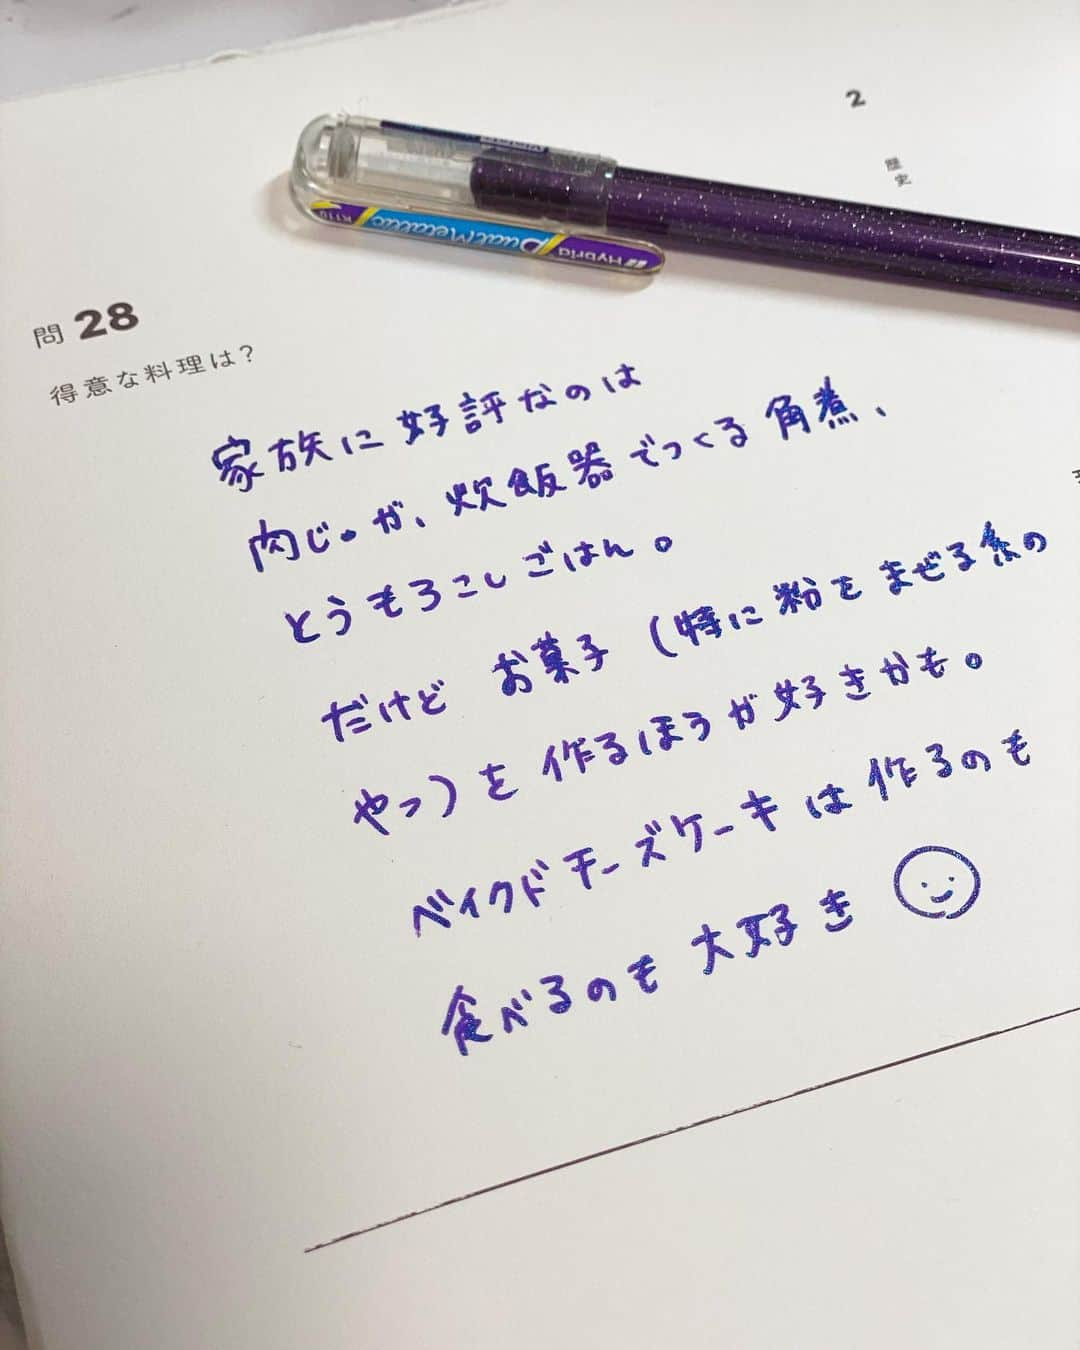 2
歴史
Hybrid
DualMetallic
K110
問 28
得意な料理は?
家族に好評なのは
肉じゃが、炊飯器でつくる角煮、
とうもろこしごはん。
だけど お菓子 (特に粉をまぜる系の
やつ) を 作るほうが好きかも。
ベイクドチーズケーキ は 作るのも
食べるのも 大好き